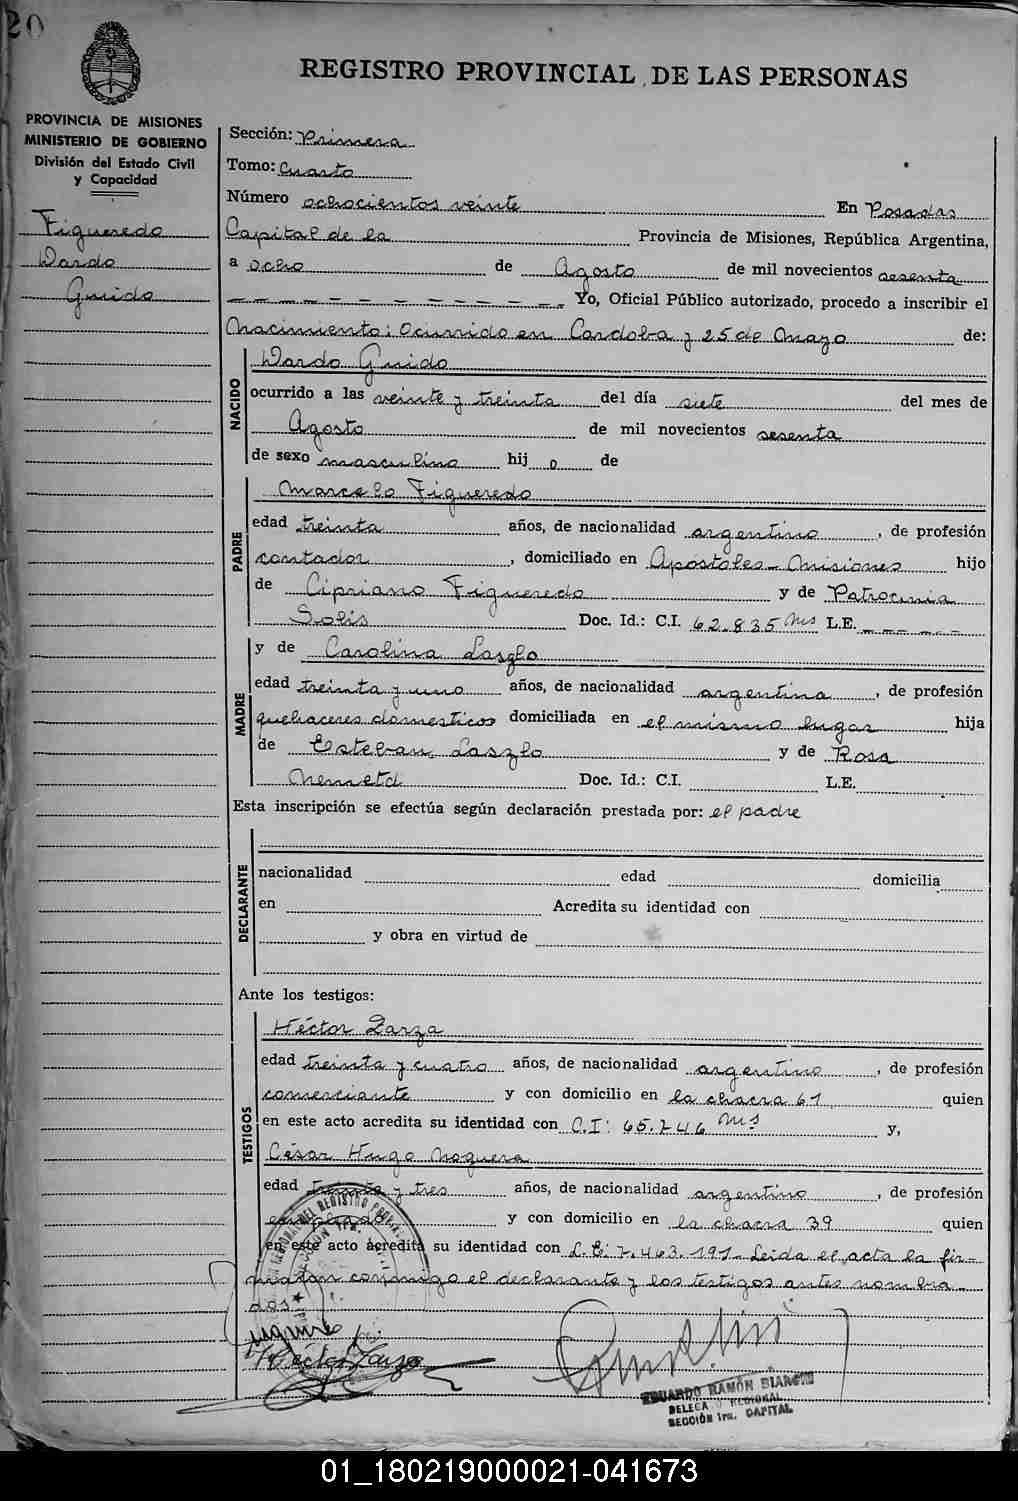 20
REGISTRO PROVINCIAL DE LAS PERSONAS
PROVINCIA DE MISIONES
MINISTERIO DE GOBIERNO
División del Estado Civil
y Capacidad
Figueredo
Wardo
Guido
Sección: Primera
Tomo: Cuarto
Número ochocientos veinte En Posadas
Capital de la Provincia de Misiones, República Argentina,
a ocho de Agosto de mil novecientos sesenta
Yo, Oficial Público autorizado, procedo a inscribir el
Nacimiento: Ocurrido en Cordoba y 25 de Mayo de:
NACIDO
Wardo Guido
ocurrido a las veinte y treinta del día siete del mes de
Agosto de mil novecientos sesenta
de sexo masculino hij o de
PADRE
Marcelo Figueredo
edad treinta años, de nacionalidad argentino, de profesión
contador, domiciliado en Apostoles - Misiones hijo
de Cipriano Figueredo y de Patrocinia
Solis Doc. Id.: C.I. 62.835 Mis L.E.
MADRE
y de Carolina Laszlo
edad treinta y uno años, de nacionalidad argentina, de profesión
quehaceres domesticos domiciliada en el mismo lugar hija
de Esteban Laszlo y de Rosa
Doc. Id.: C.I. L.E.
Esta inscripción se efectúa según declaración prestada por: el padre
DECLARANTE
nacionalidad edad domicilia
en Acredita su identidad con
y obra en virtud de
Ante los testigos:
TESTIGOS
Héctor Zarza
edad treinta y cuatro años, de nacionalidad argentino, de profesión
comerciante y con domicilio en la chacra 61 quien
en este acto acredita su identidad con C.I: 65.746 Mis y,
César Hugo Noguera
edad treinta y tres años, de nacionalidad argentino, de profesión
empleado y con domicilio en la chacra 39 quien
en este acto acredita su identidad con L.E: 7.463.191- Leida el acta la fir-
maron conmigo el declarante y los testigos antes nombra-
dos
Hector Zarza
EDUARDO RAMÓN BIANCHI
DELEGADO REGIONAL
SECCIÓN 1ra. CAPITAL
01_180219000021-041673